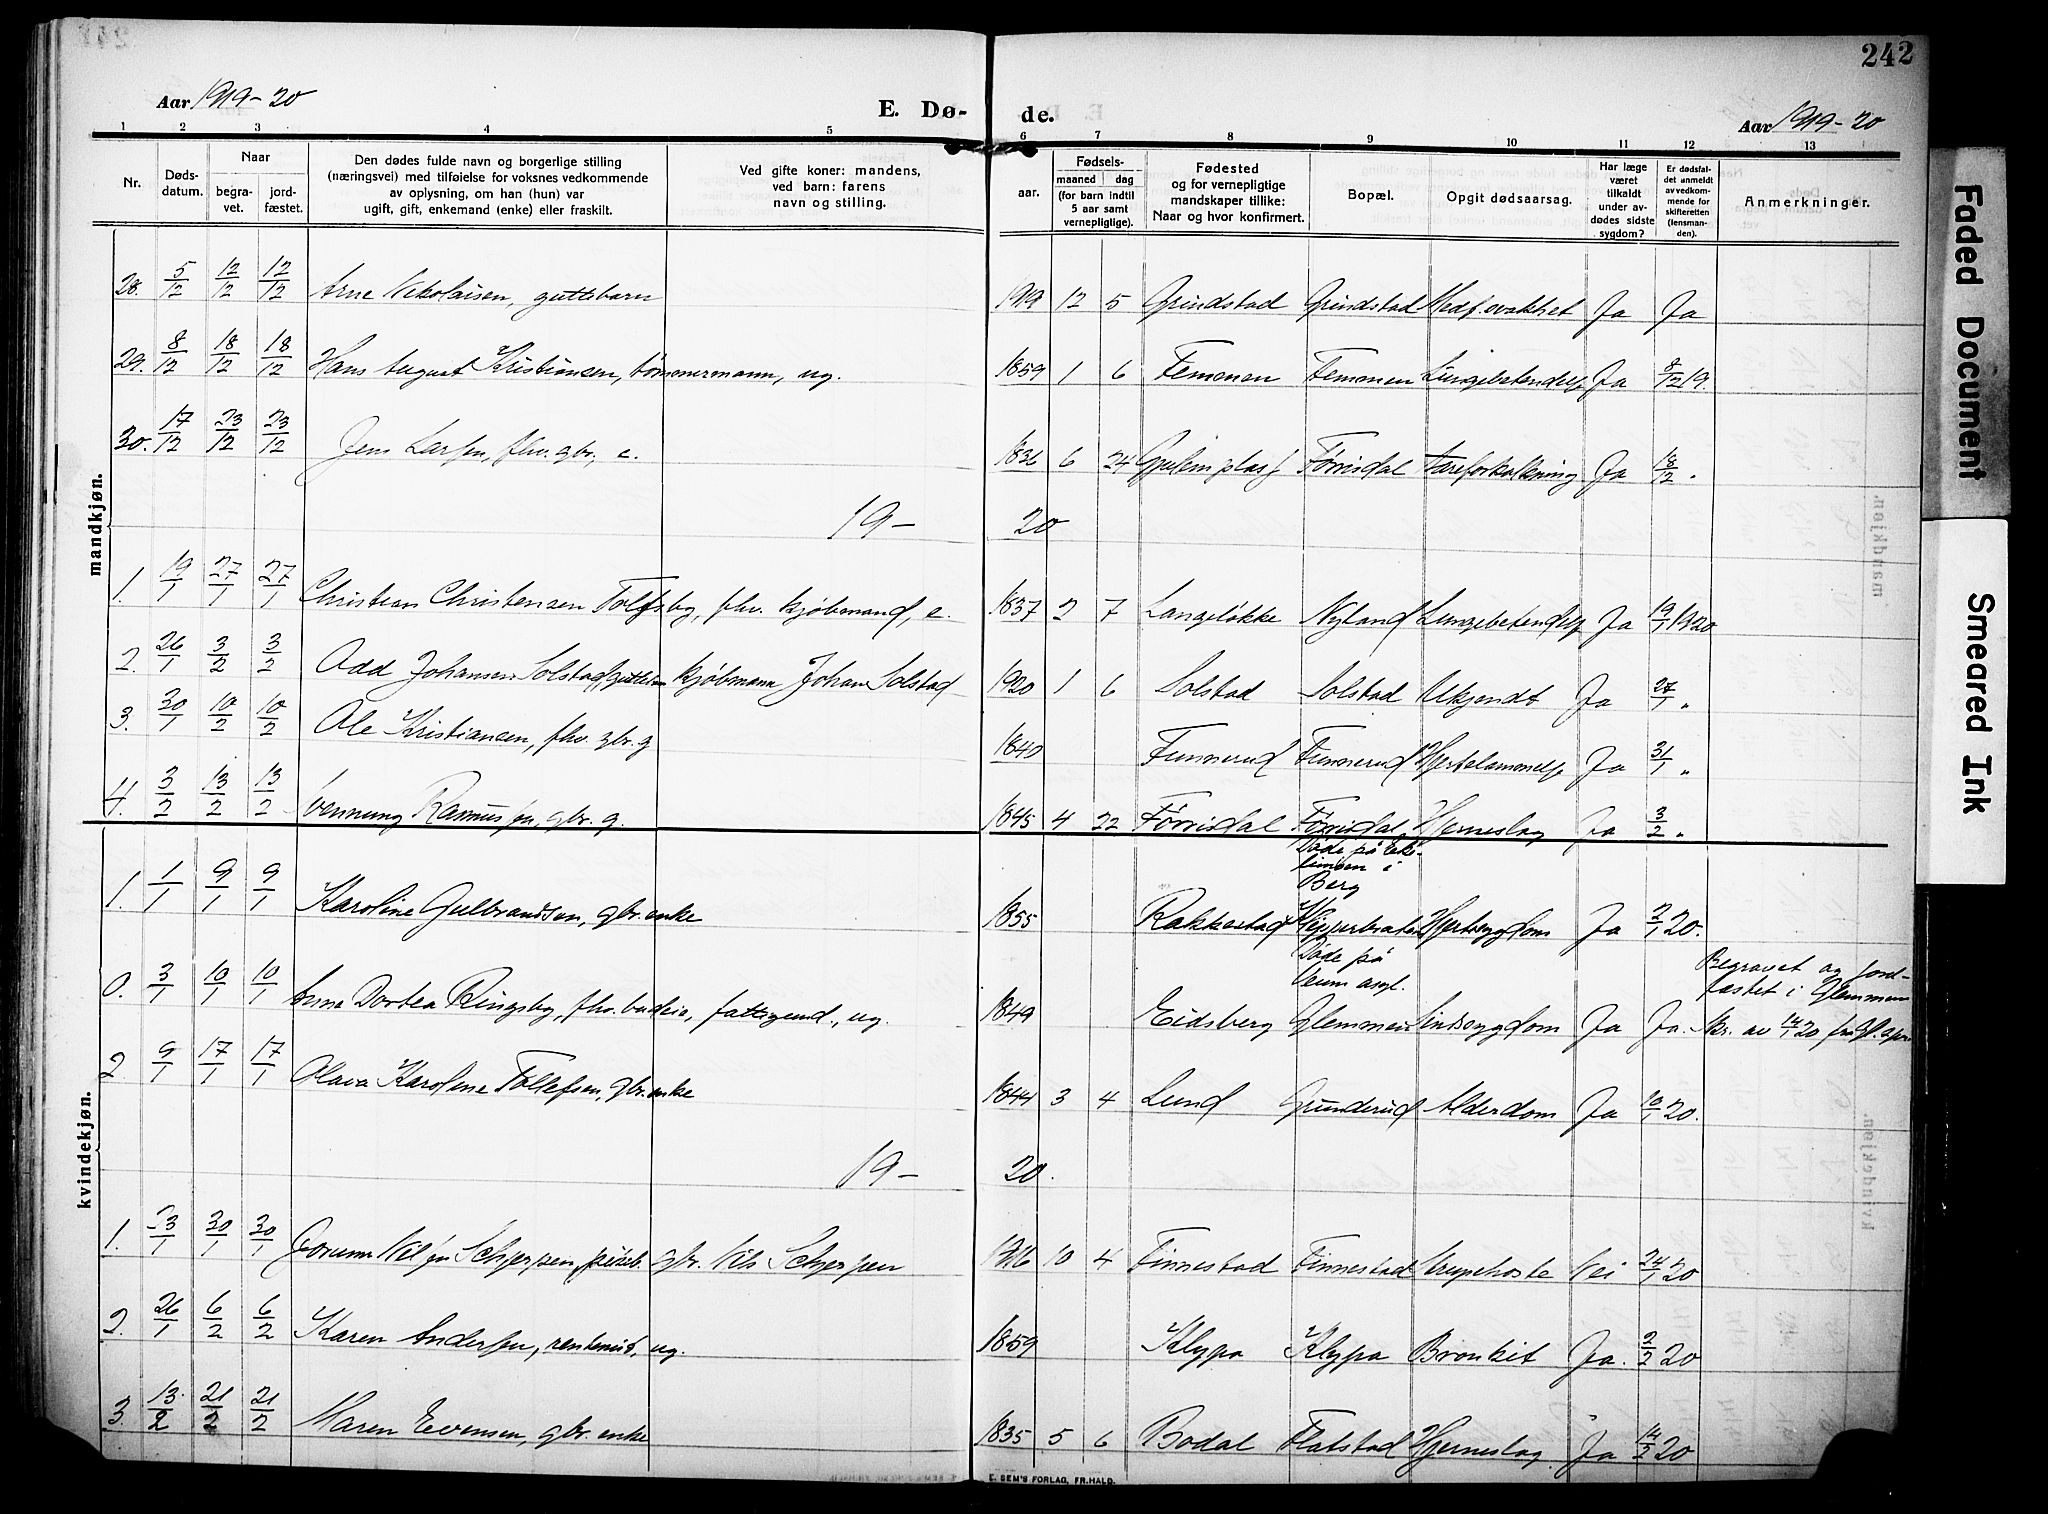 242
Aar 1919-20
E. Dø-
de.
Aar 1919-20
1 2 3 4 5 6 7 8 9 10 11 12 13
Nr.
Døds-
datum.
Naar
begra-
vet.
jord-
fæstet.
Den dødes fulde navn og borgerlige stilling
(næringsvei) med tilføielse for voksnes vedkommende
av oplysning, om han (hun) var
ugift, gift, enkemand (enke) eller fraskilt.
Ved gifte koner: mandens,
ved barn: farens
navn og stilling.
Fødsels-
aar.
maaned dag
(for barn indtil
5 aar samt
vernepligtige).
Fødested
og for vernepligtige
mandskaper tillike:
Naar og hvor konfirmert.
Bopæl.
Opgit dødsaarsag.
Har læge
været
tilkaldt
under av-
dødes sidste
sygdom?
Er dødsfal-
det anmeldt
av vedkom-
mende for
skifteretten
(lensman-
den).
Anmerkninger.
mandkjøn.
28. 5/12 12/12 12/12 Arne Nikolaisen, guttebarn 1919 12 5 Grindstad Grindstad Medf. svakhet Ja Ja
29. 8/12 18/12 18/12 Hans August Kristiansen, tømmermann, ug. 1859 1 6 Femmen Femmen Lungebetendelse Ja 8/12 19.
30. 17/12 23/12 23/12 Jens Larsen, fhv. gbr., e. 1836 6 24 Førrisdal Aareforkalkning Ja 18/12 "
19-20
1. 19/1 27/1 27/1 Christian Christensen Tolfsby, fhv. kjøbmand, e. 1837 2 7 Langeløkke Nyland Lungebetendelse Ja 19/1 1920
2. 26/1 3/2 3/2 Odd Johansen Solstad, guttebarn kjøbmann Johan Solstad 1920 1 6 Solstad Solstad Ukjendt Ja 27/1 "
3. 30/1 10/2 10/2 Ole Kristiansen, fhv. gbr. g 1840 Funnerud Funnerud Hjertelammelse Ja 31/1 "
4. 3/2 13/2 13/2 Venning Rasmussen, gbr. g. 1845 4 22 Førrisdal Førrisdal Hjerneslag Ja 3/2 "
kvindekjøn.
Døde på
i
Berg
1. 1/1 9/1 9/1 Karoline Gulbrandsen, gbr. enke 1855 Rakkestad Hjertesygdom Ja 2/1 20.
Døde på
Veum asyl.
Begravet og jord-
fæstet i Glemmen
0. 3/1 10/1 10/1 Anna Dortea Ringsby, fhv. budeie, fattigund., ug. 1849 Eidsberg Glemmen Sindssygdom Ja Ja. Skr. av 14/1 20 fra
2 9/1 17/1 17/1 Olava Karoline Tollefsen, gbr. enke 1844 3 4 Lund Grunderud Alderdom Ja 10/1 20.
19-20.
1. 23/1 30/1 30/1 Jorunn Nilsen Schjerpen, pikeb. gbr. Nils Schjerpen 1916 10 4 Finnestad Finnestad Strupehoste Nei 24/1 20
2. 26/1 6/2 6/2 Karen Andersen, rentenist, ug. 1859 Klypa Klypa Bronkit Ja. 2/2 20
3. 13/2 21/2 21/2 Maren Evensen, gbr. enke 1835 5 6 Bodal Flatstad Hjerneslag. Ja 14/2 20
E. SEM'S FORLAG, FR.HALD.
Faded Document
Smeared Ink